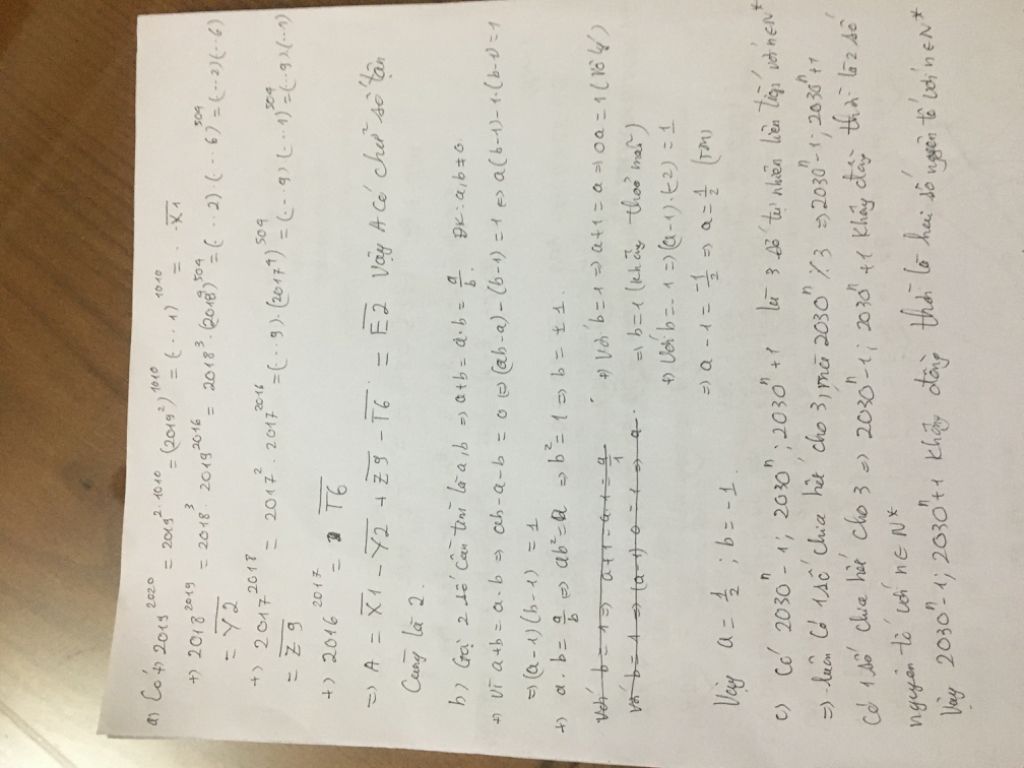 a) Có +) 2019^2020 = 2019^2.1010 = (2019^2)^1010 = (...1)^1010 = \overline{X1}
+) 2018^2019 = 2018^3 . 2019^2016 = 2018^3 . (2018^4)^504 = (...2) . (...6)^504 = (...2)(...6)
= \overline{Y2}
+) 2017^2018 = 2017^2 . 2017^2016 = (...9) . (2017^4)^504 = (...9) (...1)^504 = (...9)(...1)
= \overline{Z9}
+) 2016^2017 = \overline{T6}
=> A = \overline{X1} - \overline{Y2} + \overline{Z9} - \overline{T6} = \overline{E2} Vậy A có chữ số tận
Cùng là 2.
b) Gọi 2 số cần tìm là a, b => a+b = a.b = a/b ĐK: a, b ≠ 0.
+) Vì a+b = a.b => ab - a - b = 0 <=> (ab-a) - (b-1) = 1 <=> a(b-1) - 1.(b-1) = 1
=> (a-1)(b-1) = 1
+) a.b = a/b <=> ab² = a => b² = 1 => b = ±1.
Với b = 1 => a+1 = a.1 = a/1
+) Với b = 1 => a+1 = a => 0a = 1 (Vô lý)
Với b = -1 => (a-1) 0 = 1 => a
=> b = 1 (không thoả mãn)
+) Với b = -1 => (a-1).(-2) = 1
=> a - 1 = -1/2 => a = 1/2 (TM)
Vậy a = 1/2 ; b = -1.
c) Có 2030^n - 1; 2030^n; 2030^n + 1 là 3 số tự nhiên liên tiếp với n∈N*
=> luôn có 1 số chia hết cho 3, mà 2030^n ⋮̸ 3 => 2030^n - 1; 2030^n + 1
Có 1 số chia hết cho 3 => 2030^n - 1; 2030^n + 1 không đồng thời là 2 số
nguyên tố với n∈N*
Vậy 2030^n - 1; 2030^n + 1 không đồng thời là hai số nguyên tố với n∈N*